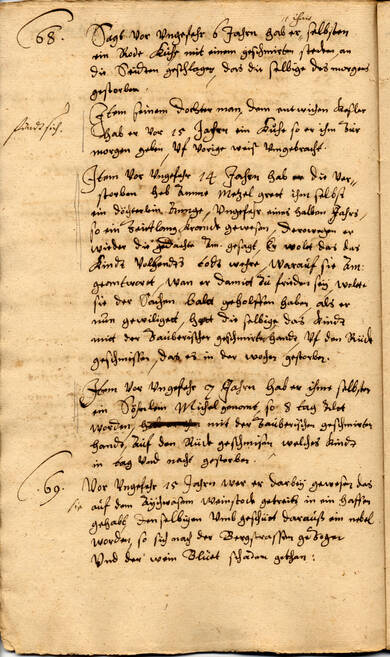 68.
Sagt vor Ungefehr 6 Jahrn hab er, ihm selbsten
ein Rode Kühe mit einem geschmirten stecken an
die Seuden geschlagen, das die selbige des morgens
gestorben.
Item seinem dochterman, dem entwichen
findt sich.
hab er vor 15 Jahrn ein Kühe so er ihm zur
morgen geben, Uf vorige weiß Umgebracht.
Item Vor Ungefehr 14 Jahrn hab er die Ver-
storben heb Amme greet ihm selbst
ein döchterlein, Ungefehr eines halben Jahrs,
so ein Zeittlang Kranck gewesen, derowegen er
wieder die gedachte Am. gesagt, Er wolt das das
Kindt Vollendts todt wehre, Warauf sie Am.
geantwort, wan er damit zu friden sey, wolte
sie der Sachen baldt geholffen haben, als er
nun gewilligett, hett die selbige das Kindt
mit der Zauberischen geschmirten handt, Uf den Rück
geschmissen, das es in der wochen gestorben.
Item vor Ungefehr 9 Jahrn hab er ihme selbsten
ein Söhnlein Michel genant, so 8 tag alt
worden, mit der Zauberischen geschmirten
handt, Auf den Rück geschmissen welches Kindt
in tag Und nacht gestorben.
69.
Vor Ungefehr 15 Jahrn wer er darbey gewesen das
sie
auf dem Weinstock getreits in ein Haffen
gehabt, denselbigen Umb geschüt darauß ein nebel
worden, so sich nach der Bergstrassen gezogen
Und der wein Blüet schaden gethan: